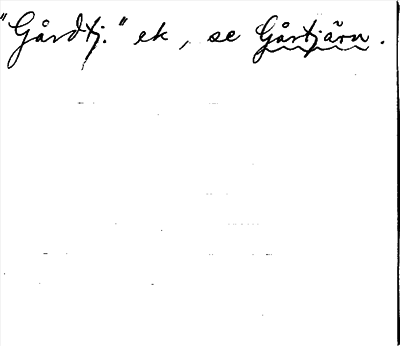 "Gårdtj." ek, se Gårtjärn.